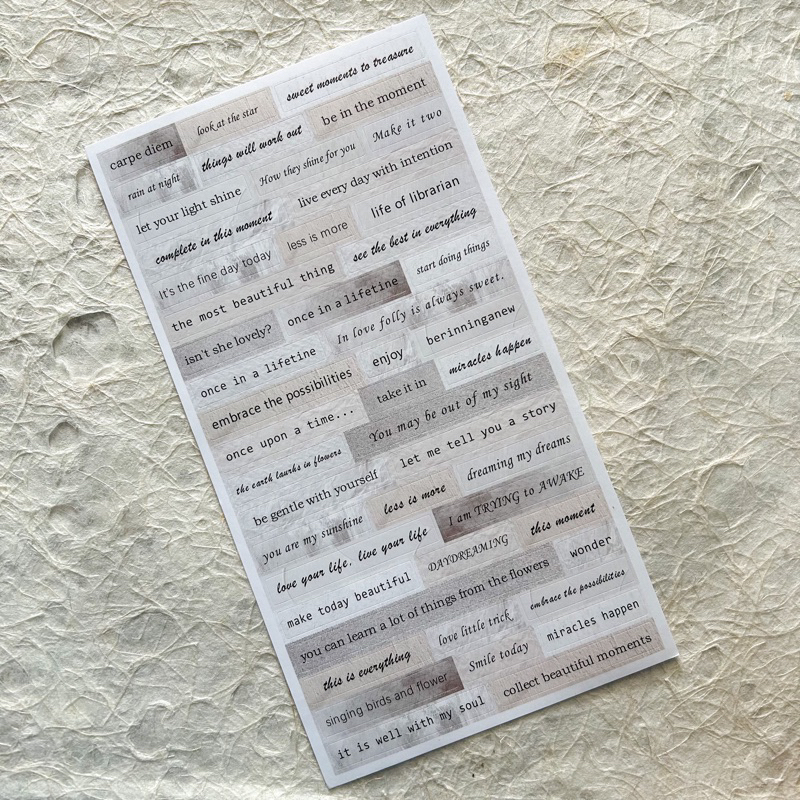 sweet moments to treasure
carpe diem
look at the star
be in the moment
rain at night
things will work out
Make it two
let your light shine
How they shine for you
live every day with intention
complete in this moment
less is more
life of librarian
It's the fine day today
see the best in everything
the most beautiful thing
once in a lifetime
start doing things
isn't she lovely?
In love folly is always sweet.
once in a lifetime
enjoy
berinninganew
embrace the possibilities
take it in
miracles happen
once upon a time...
You may be out of my sight
the earth laughs in flowers
let me tell you a story
be gentle with yourself
less is more
dreaming my dreams
you are my sunshine
I am TRYING to AWAKE
love your life, live your life
DAYDREAMING
this moment
make today beautiful
wonder
you can learn a lot of things from the flowers
embrace the possibilities
this is everything
love little trick
miracles happen
singing birds and flower
Smile today
collect beautiful moments
it is well with my soul